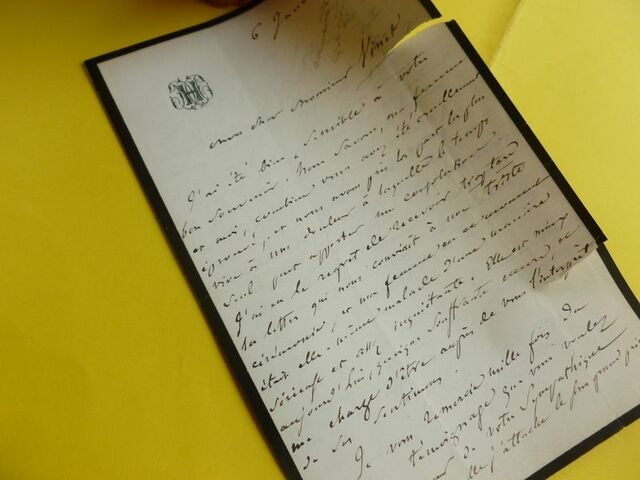 6 Janv
Mon cher Monsieur Vinet,
J'ai été bien sensible à votre
bon souvenir. Nous savons, ma femme
et moi, combien vous avez été cruellement
éprouvé, et nous avons pris la part la plus
vive à une douleur à laquelle le temps
seul peut apporter une consolation.
J'ai eu le regret de recevoir trop tard
la lettre qui nous conviait à une triste
cérémonie, et ma femme en ce moment
était elle-même malade d'une manière
sérieuse et assez inquiétante. Elle est mieux
aujourd'hui, quoique souffrante encore, et
me charge d'être auprès de vous l'interprète
de ses sentimens.
Je vous remercie mille fois du
témoignage que vous voulez
de votre sympathique
j'attache le plus grand prix